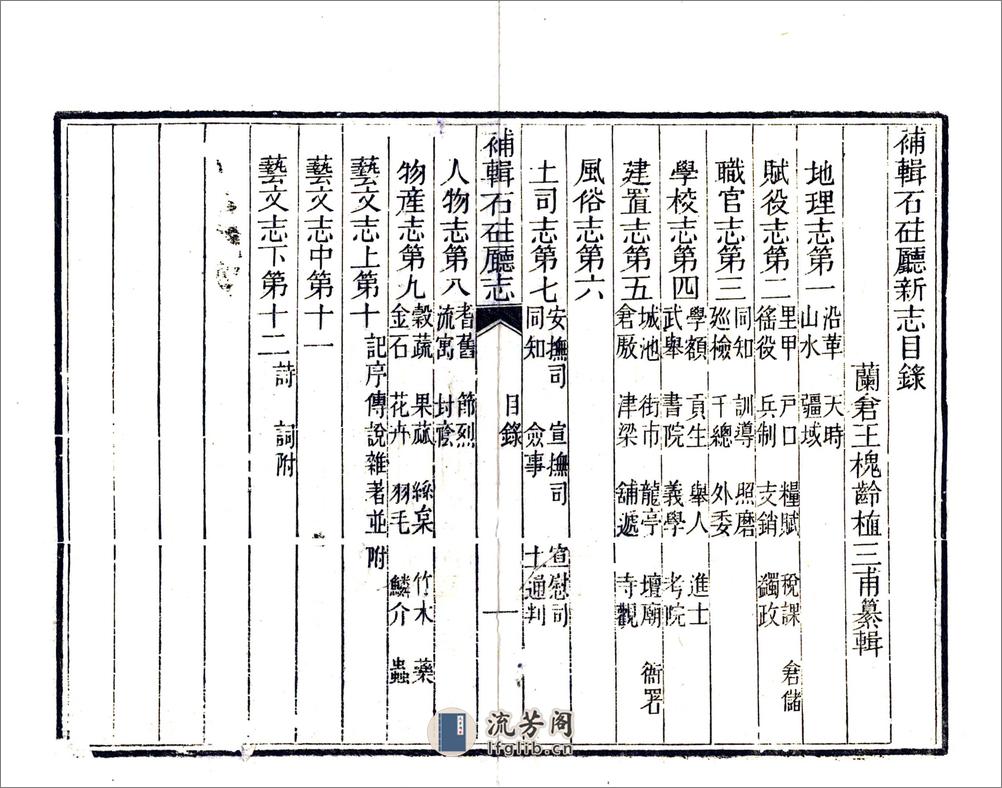 補輯石砫廳新志目錄
蘭倉王槐齡植三甫纂輯
地理志第一 沿革 天時
山水 疆域
賦役志第二 里甲 戶口 糧賦 稅課 倉儲
徭役 兵制 支銷 蠲政
職官志第三 同知 訓導 照磨
廵檢 千總 外委
學校志第四 學額 貢生 舉人 進士
武舉 書院 義學 考院
建置志第五 城池 街市 龍亭 壇廟 衙署
倉厫 津梁 舖遞 寺觀
風俗志第六
土司志第七 安撫司 宣撫司 宣慰司
同知 僉事 土通判
補輯石砫廳志 目錄 一
人物志第八 耆舊 節烈
流寓 封廕
物產志第九 穀蔬 果蓏 絲枲 竹木 藥
金石 花卉 羽毛 鱗介 蟲
藝文志上第十 記序傳說雜著並附
藝文志中第十一
藝文志下第十二 詩 詞附
流芳阁
lfglib.cn